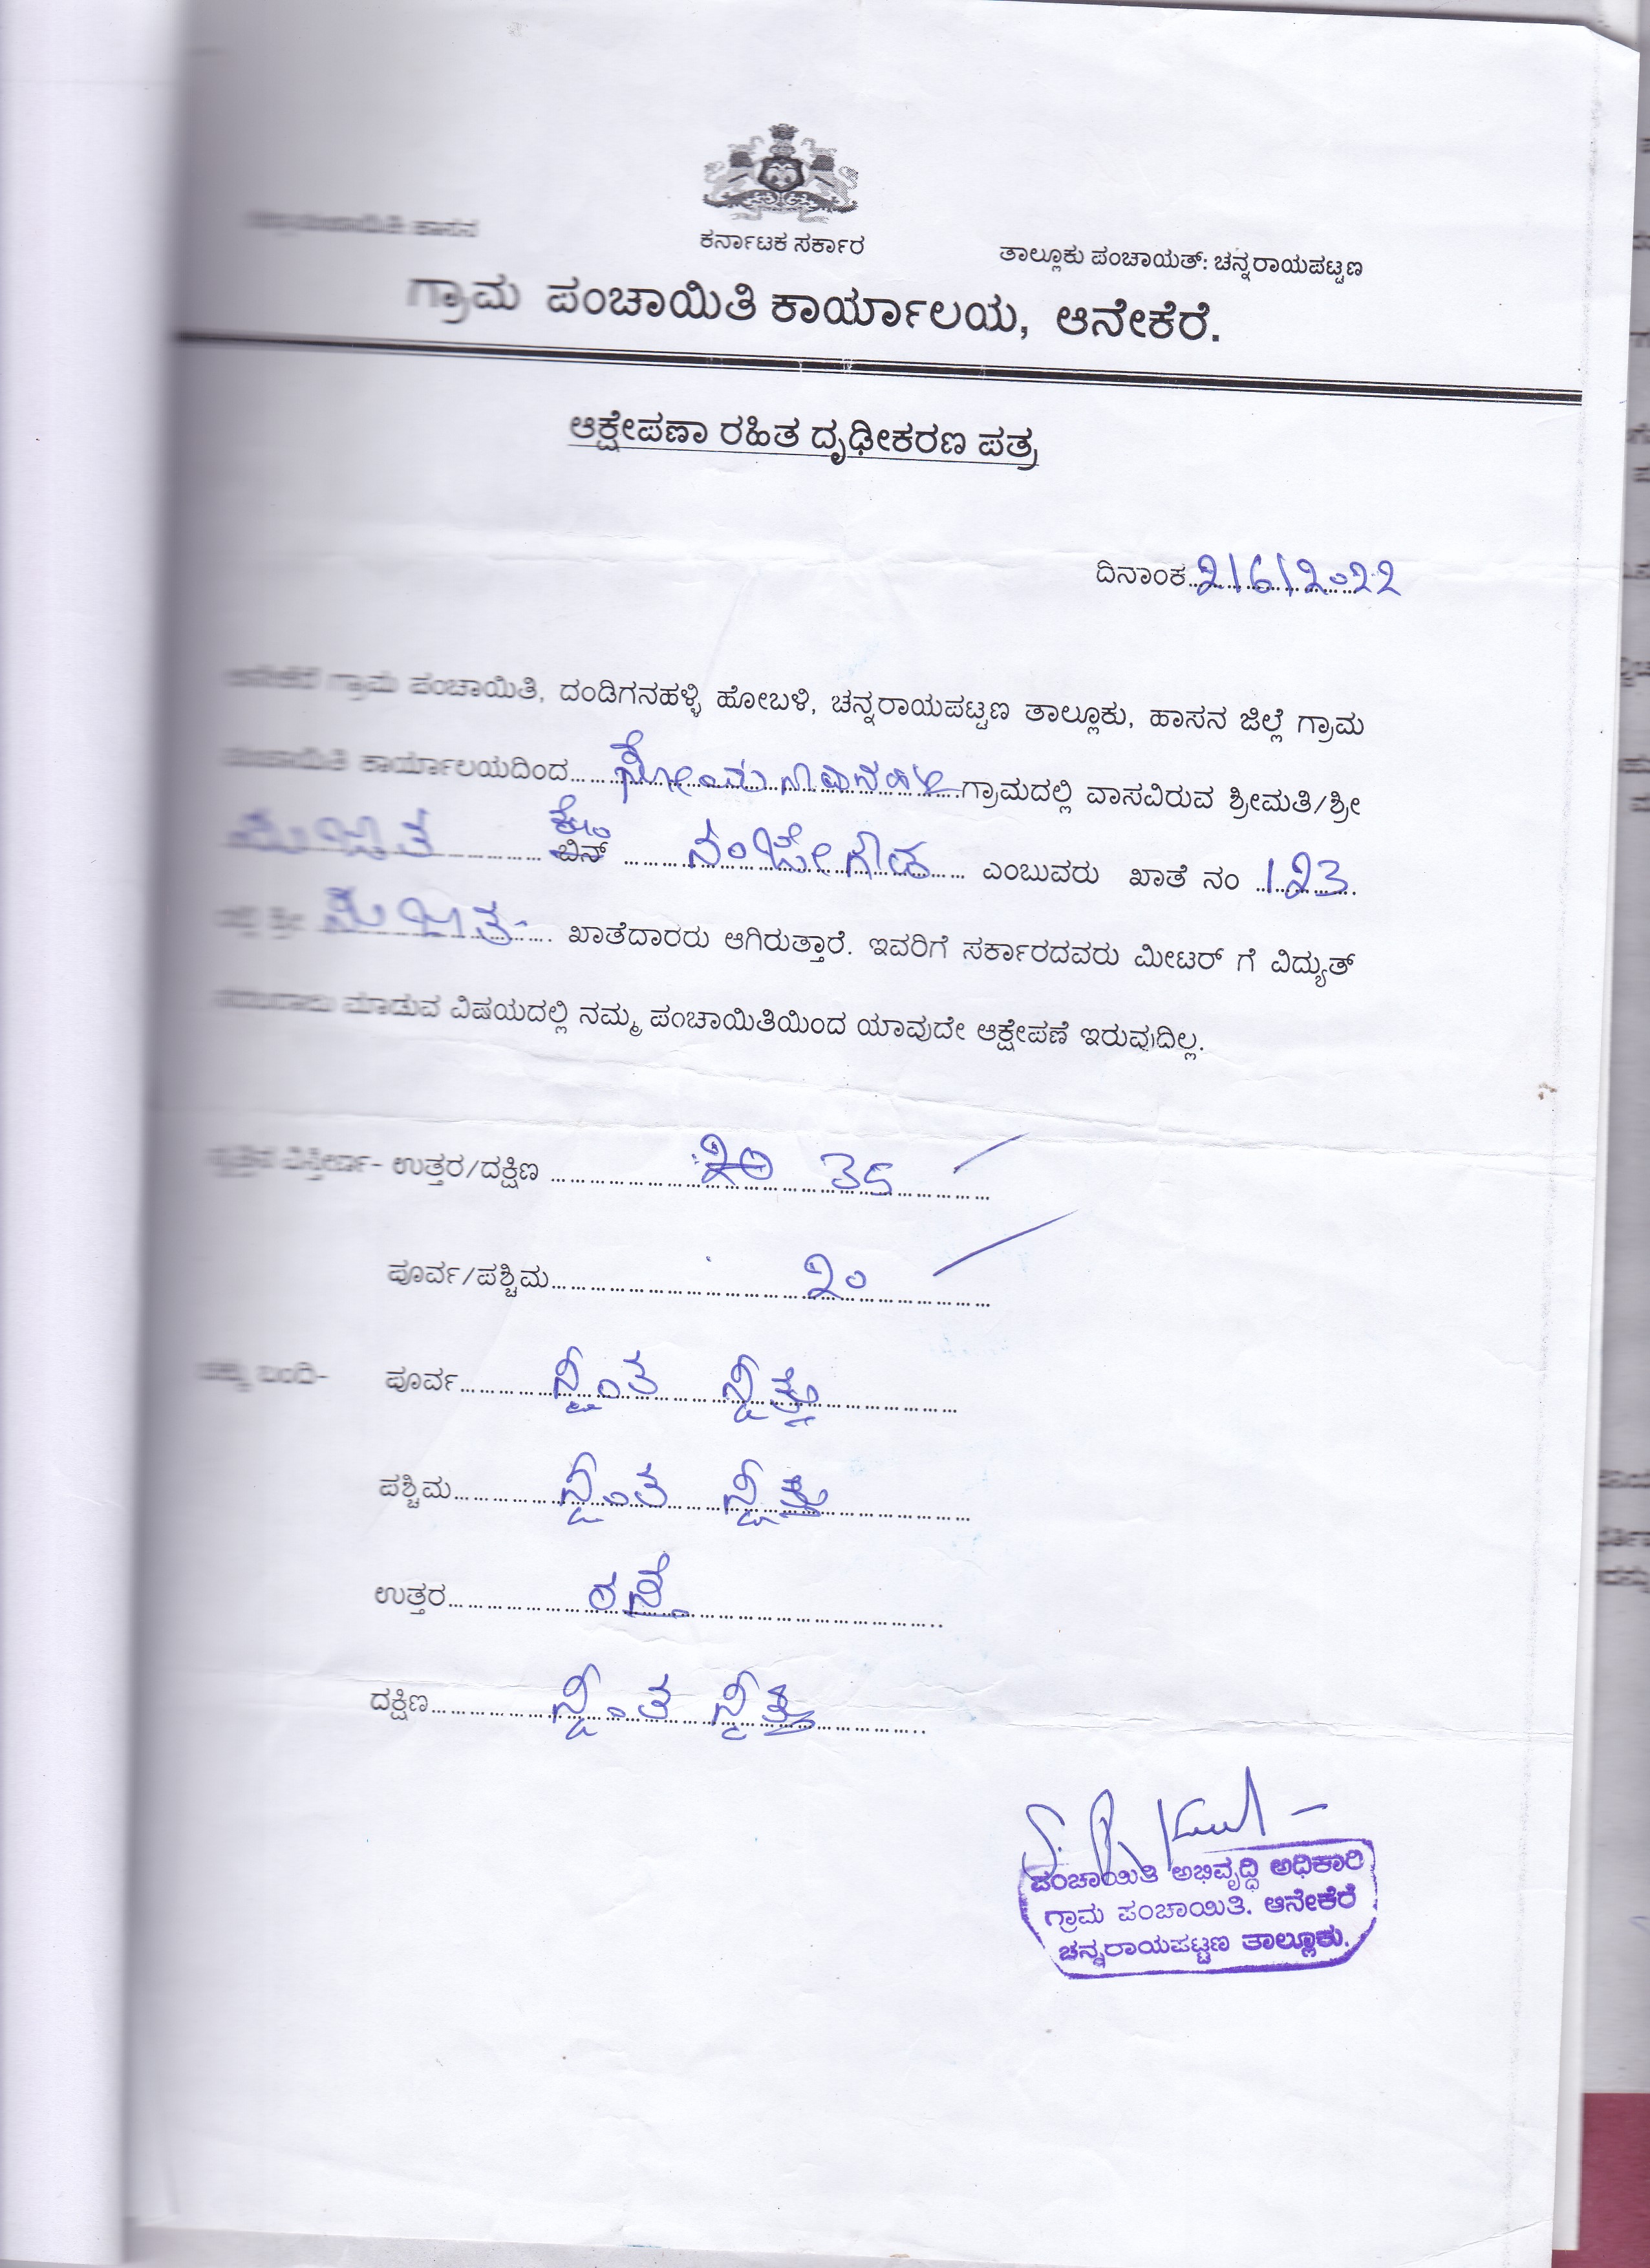 ಕರ್ನಾಟಕ ಸರ್ಕಾರ
ಹಾಸನ
ತಾಲ್ಲೂಕು ಪಂಚಾಯತ್: ಚನ್ನರಾಯಪಟ್ಟಣ
ಗ್ರಾಮ ಪಂಚಾಯಿತಿ ಕಾರ್ಯಾಲಯ, ಆನೇಕೆರೆ.
ಆಕ್ಷೇಪಣಾ ರಹಿತ ದೃಢೀಕರಣ ಪತ್ರ
ದಿನಾಂಕ 2/6/2022
ಆನೇಕೆರೆ ಗ್ರಾಮ ಪಂಚಾಯಿತಿ, ದಂಡಿಗನಹಳ್ಳಿ ಹೋಬಳಿ, ಚನ್ನರಾಯಪಟ್ಟಣ ತಾಲ್ಲೂಕು, ಹಾಸನ ಜಿಲ್ಲೆ ಗ್ರಾಮ
ಪಂಚಾಯಿತಿ ಕಾರ್ಯಾಲಯದಿಂದ ಗ್ರಾಮದಲ್ಲಿ ವಾಸವಿರುವ ಶ್ರೀಮತಿ/ಶ್ರೀ
ಬಿನ್ ನಂಜೇಗೌಡ ಎಂಬುವರು ಖಾತೆ ನಂ 123.
ಶ್ರೀ ಖಾತೆದಾರರು ಆಗಿರುತ್ತಾರೆ. ಇವರಿಗೆ ಸರ್ಕಾರದವರು ಮೀಟರ್ ಗೆ ವಿದ್ಯುತ್
ಮಾಡುವ ವಿಷಯದಲ್ಲಿ ನಮ್ಮ ಪಂಚಾಯಿತಿಯಿಂದ ಯಾವುದೇ ಆಕ್ಷೇಪಣೆ ಇರುವುದಿಲ್ಲ.
ವಿಸ್ತೀರ್ಣ- ಉತ್ತರ/ದಕ್ಷಿಣ 35
ಪೂರ್ವ/ಪಶ್ಚಿಮ 20
ಬಂದಿ- ಪೂರ್ವ ಸ್ವಂತ ಸ್ವತ್ತು
ಪಶ್ಚಿಮ ಸ್ವಂತ ಸ್ವತ್ತು
ಉತ್ತರ ರಸ್ತೆ
ದಕ್ಷಿಣ ಸ್ವಂತ ಸ್ವತ್ತು
ಪಂಚಾಯಿತಿ ಅಭಿವೃದ್ಧಿ ಅಧಿಕಾರಿ
ಗ್ರಾಮ ಪಂಚಾಯಿತಿ. ಆನೇಕೆರೆ
ಚನ್ನರಾಯಪಟ್ಟಣ ತಾಲ್ಲೂಕು.